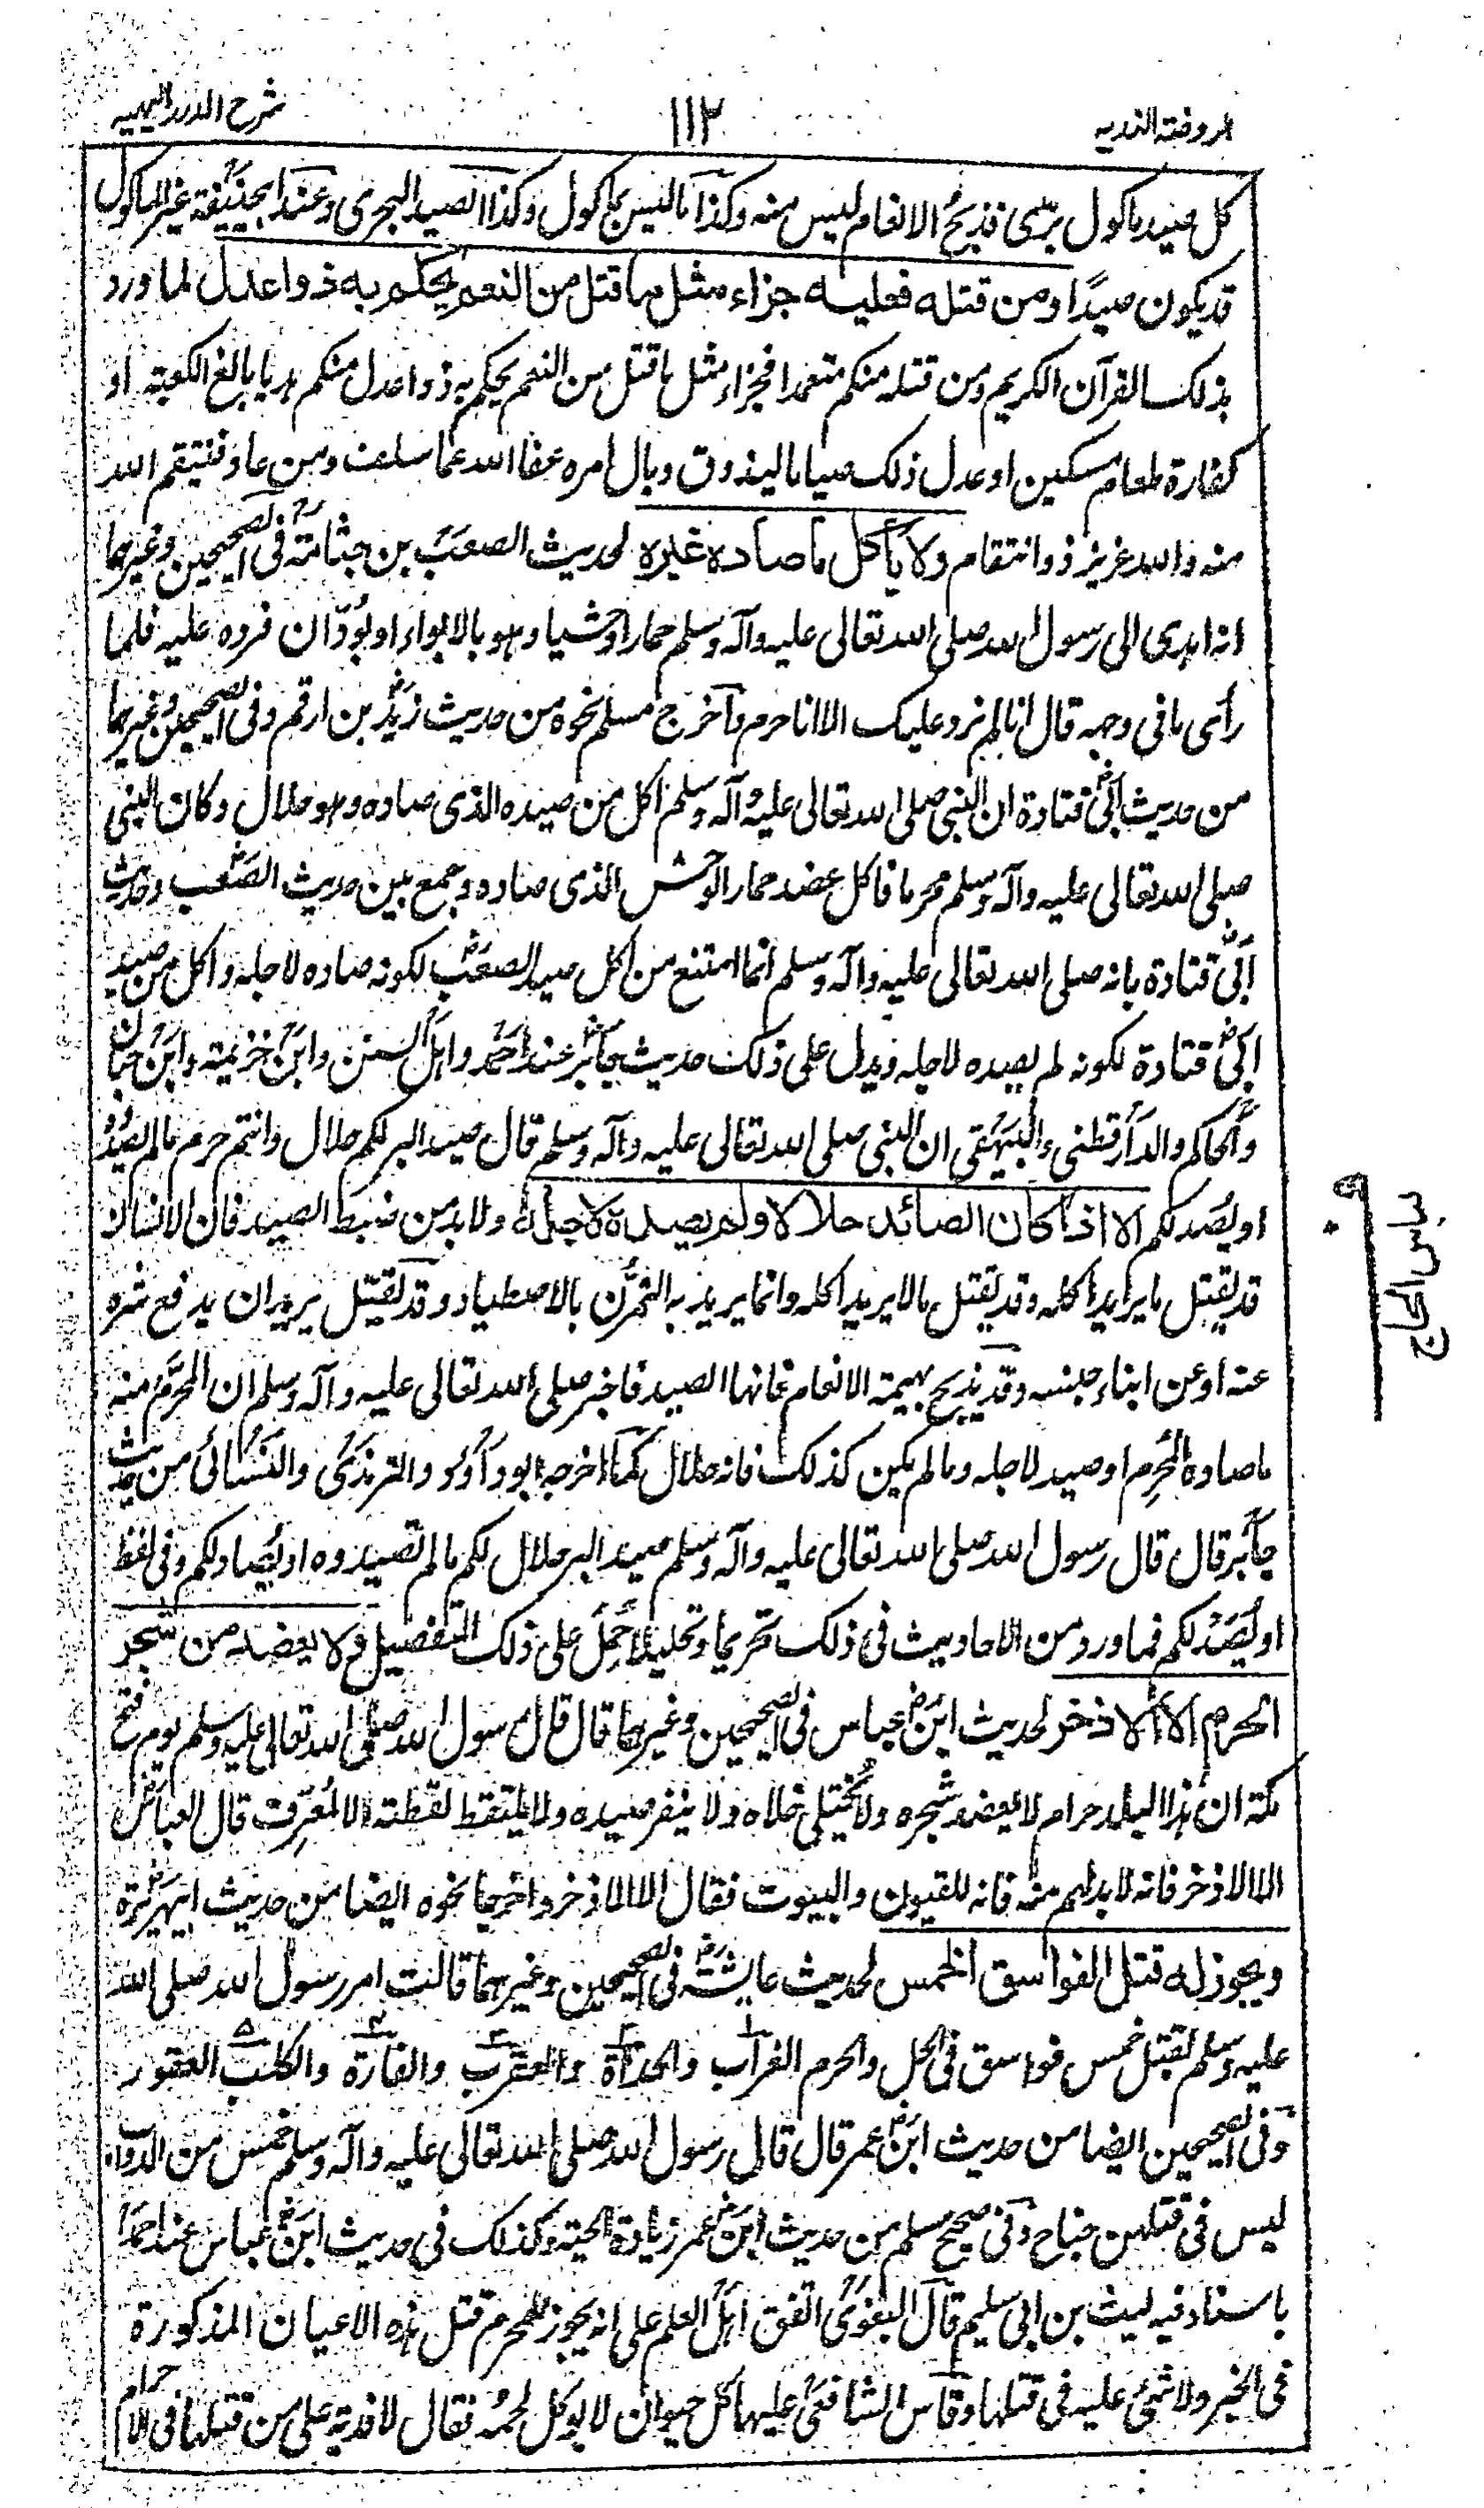 الروضة الندية
١١٢
شرح الدرر البهية
كل صيد ماكول بري فذبح الانعام ليس منه وكذا ما ليس بماكول وكذا الصيد البحرى وعند ابيحنيفة غير الماكول
قد يكون صيدًا ومن قتله فعليه جزاء مثل ما قتل من النعم يحكم به ذوا عدل لما ورد
بذلك القرآن الكريم ومن قتله منكم متعمدا فجزاء مثل ما قتل من النعم يحكم به ذوا عدل منكم هديا بالغ الكعبة او
كفارة طعام مسكين او عدل ذلك صياما ليذوق وبال امره عفا الله عما سلف ومن عاد فينتقم الله
منه والله عزيز ذو انتقام ولا يأكل ما صاده غيره لحديث الصعب بن جثامة في الصحيحين وغيرهما
انه اهدى الى رسول الله صلى الله تعالى عليه وآله وسلم حمارا وحشيا وهو بالابواء او بودّان فرده عليه فلما
رأى ما فى وجهه قال انا لم نرد عليك الا انا حرم وآخرج مسلم نحوه من حديث زيد بن ارقم وفى الصحيحين وغيرهما
من حديث ابى قتادة ان النبى صلى الله تعالى عليه وآله وسلم اكل من صيده الذى صاده وهو حلال وكان النبى
صلى الله تعالى عليه وآله وسلم محرما فاكل عضد حمار الوحش الذى صاده وجمع بين حديث الصعب وحديث
ابى قتادة بانه صلى الله تعالى عليه وآله وسلم انما امتنع من اكل صيد الصعب لكونه صاده لاجله واكل من صيد
ابى قتادة لكونه لم يصيده لاجله ويدل على ذلك حديث جابر عند احمد واهل السنن وابن خزيمة وابن حبان
والحاكم والدارقطنى والبيهقى ان النبى صلى الله تعالى عليه وآله وسلم قال صيد البر لكم حلال وانتم حرم ما لم تصيدوه
او يصد لكم الا اذا كان الصائد حلالا ولم يصيده لاجله ولا بد من ضبط الصيد فان الانسان
قد يقتل ما يريد اكله وقد يقتل ما لا يريد اكله وانما يريد به التمرّن بالاصطياد وقد يقتل يريد ان يدفع شره
عنه او عن ابناء جنسه وقد يذبح بهيمة الانعام فانها الصيد فاخبر صلى الله تعالى عليه وآله وسلم ان المحرَّم منه
ما صاده المُحرِم او صيد لاجله وما لم يكن كذلك فانه حلال كما اخرجه ابوداود والترمذى والنسائى من حديث
جابر قال قال رسول الله صلى الله تعالى عليه وآله وسلم صيد البر حلال لكم ما لم تصيدوه او يصاد لكم وفى لفظ
او يُصَد لكم فما ورد من الاحاديث فى ذلك تحريما وتحليلا حُمِل على ذلك التفصيل ولا يعضد من شجر
الحرم الا الاذخر لحديث ابن عباس فى الصحيحين وغيرهما قال قال رسول الله صلى الله تعالى عليه وسلم يوم فتح
مكة ان هذا البلد حرام لا يعضد شجره ولا يُختلى خلاه ولا ينفر صيده ولا يلتقط لقطته الا لمعرّف قال العباس
الا الاذخر فانه لا بد لهم منه فانه للقيون والبيوت فقال الا الاذخر واخرجا نحوه ايضا من حديث ابيهريرة
ويجوز له قتل الفواسق الخمس لحديث عائشة فى الصحيحين وغيرهما قالت امر رسول الله صلى الله
عليه وسلم بقتل خمس فواسق فى الحل والحرم الغراب والحدأة والعقرب والفارة والكلب العقور
وفى الصحيحين ايضا من حديث ابن عمر قال قال رسول الله صلى الله تعالى عليه وآله وسلم خمس من الدواب
ليس فى قتلهن جناح وفى صحيح مسلم من حديث ابن عمر زيادة الحية وكذلك فى حديث ابن عباس عند احمد
باسناد فيه ليث بن ابى سليم قال البغوى اتفق اهل العلم على انه يجوز للمحرم قتل هذه الاعيان المذكورة
فى الخبر ولا شئ عليه فى قتلها وقاس الشافعى عليها كل حيوان لا يوكل لحمه فقال لا فدية على من قتلها فى الاحرام